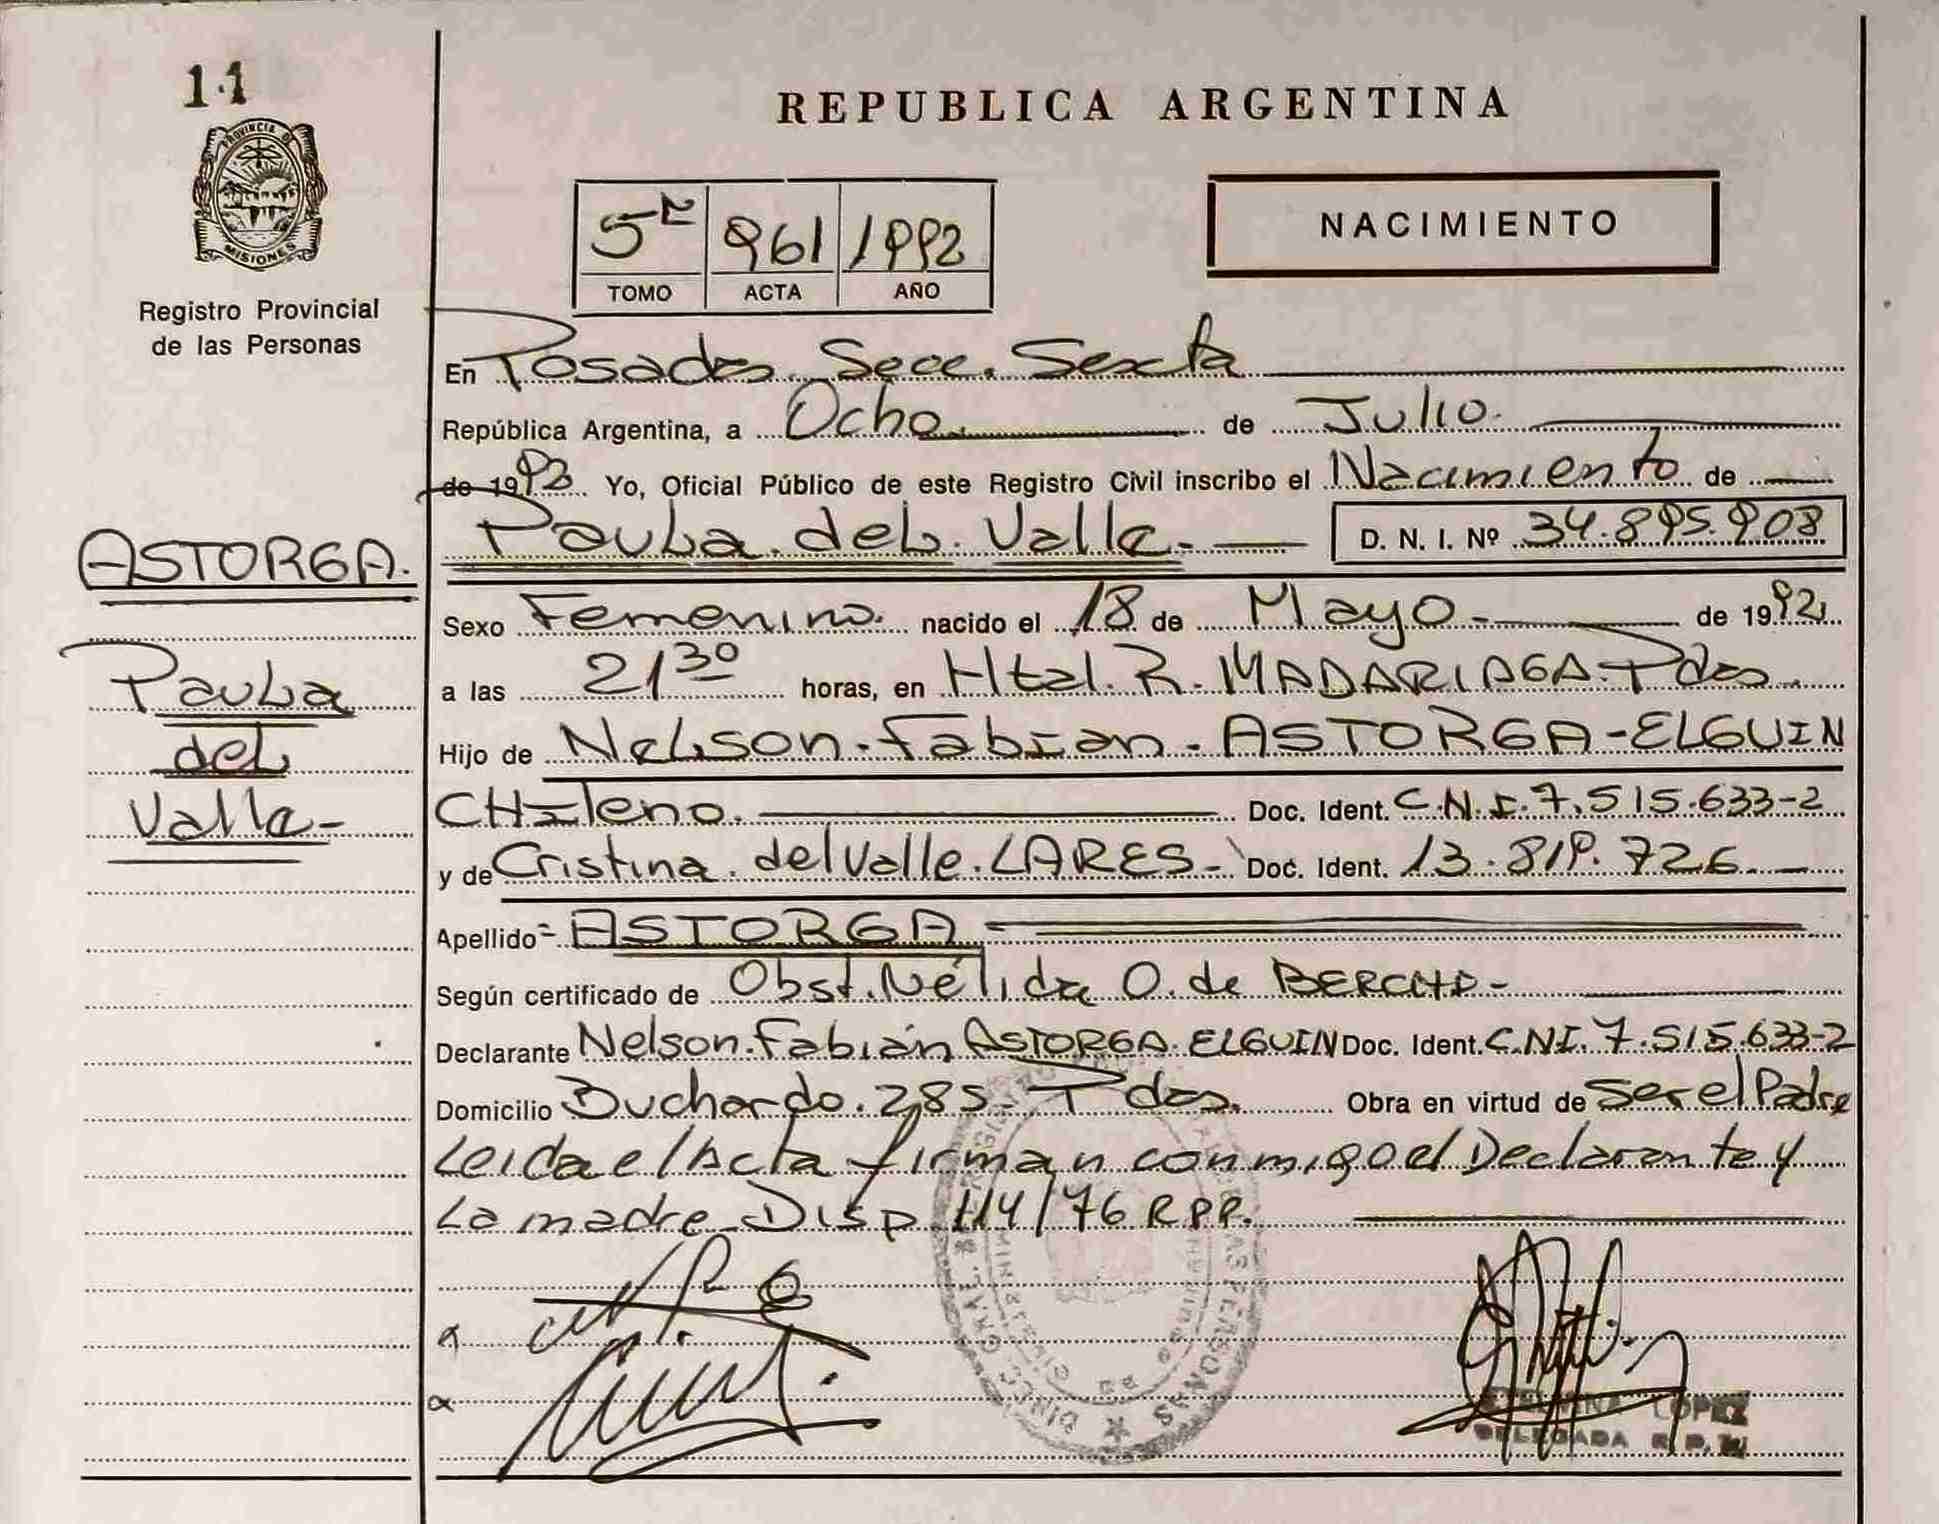 11
PROVINCIA D
MISIONES
Registro Provincial
de las Personas
REPUBLICA ARGENTINA
5 961 1992
TOMO ACTA AÑO
NACIMIENTO
En Posadas. Secc. Sexta
República Argentina, a Ocho. de Julio.
de 1992 Yo, Oficial Público de este Registro Civil inscribo el Nacimiento de
Paula del Valle.- D. N. I. Nº 34.895.908
ASTORGA.
Paula
del
Valle-
Sexo Femenino. nacido el 18 de Mayo - de 1992
a las 21 30 horas, en Htal. R. MADARIAGA. Pdas.
Hijo de Nelson. Fabian. ASTORGA-ELGUIN
CHileno. Doc. Ident. C.N.I. 7.515.633-2
y de Cristina. del Valle. LARES- Doc. Ident. 13.819.726.
Apellido ASTORGA
Según certificado de Obst. Nélida O. de
Declarante Nelson. Fabián ASTORGA. ELGUIN Doc. Ident. C.NI. 7.515.633-2
Domicilio Buchardo. 285- Pdas. Obra en virtud de Ser el Padre
Leida el Acta firman conmigo el Declarante y
La madre. Disp. 114/76 RPP.
LOPEZ
DELEGADA